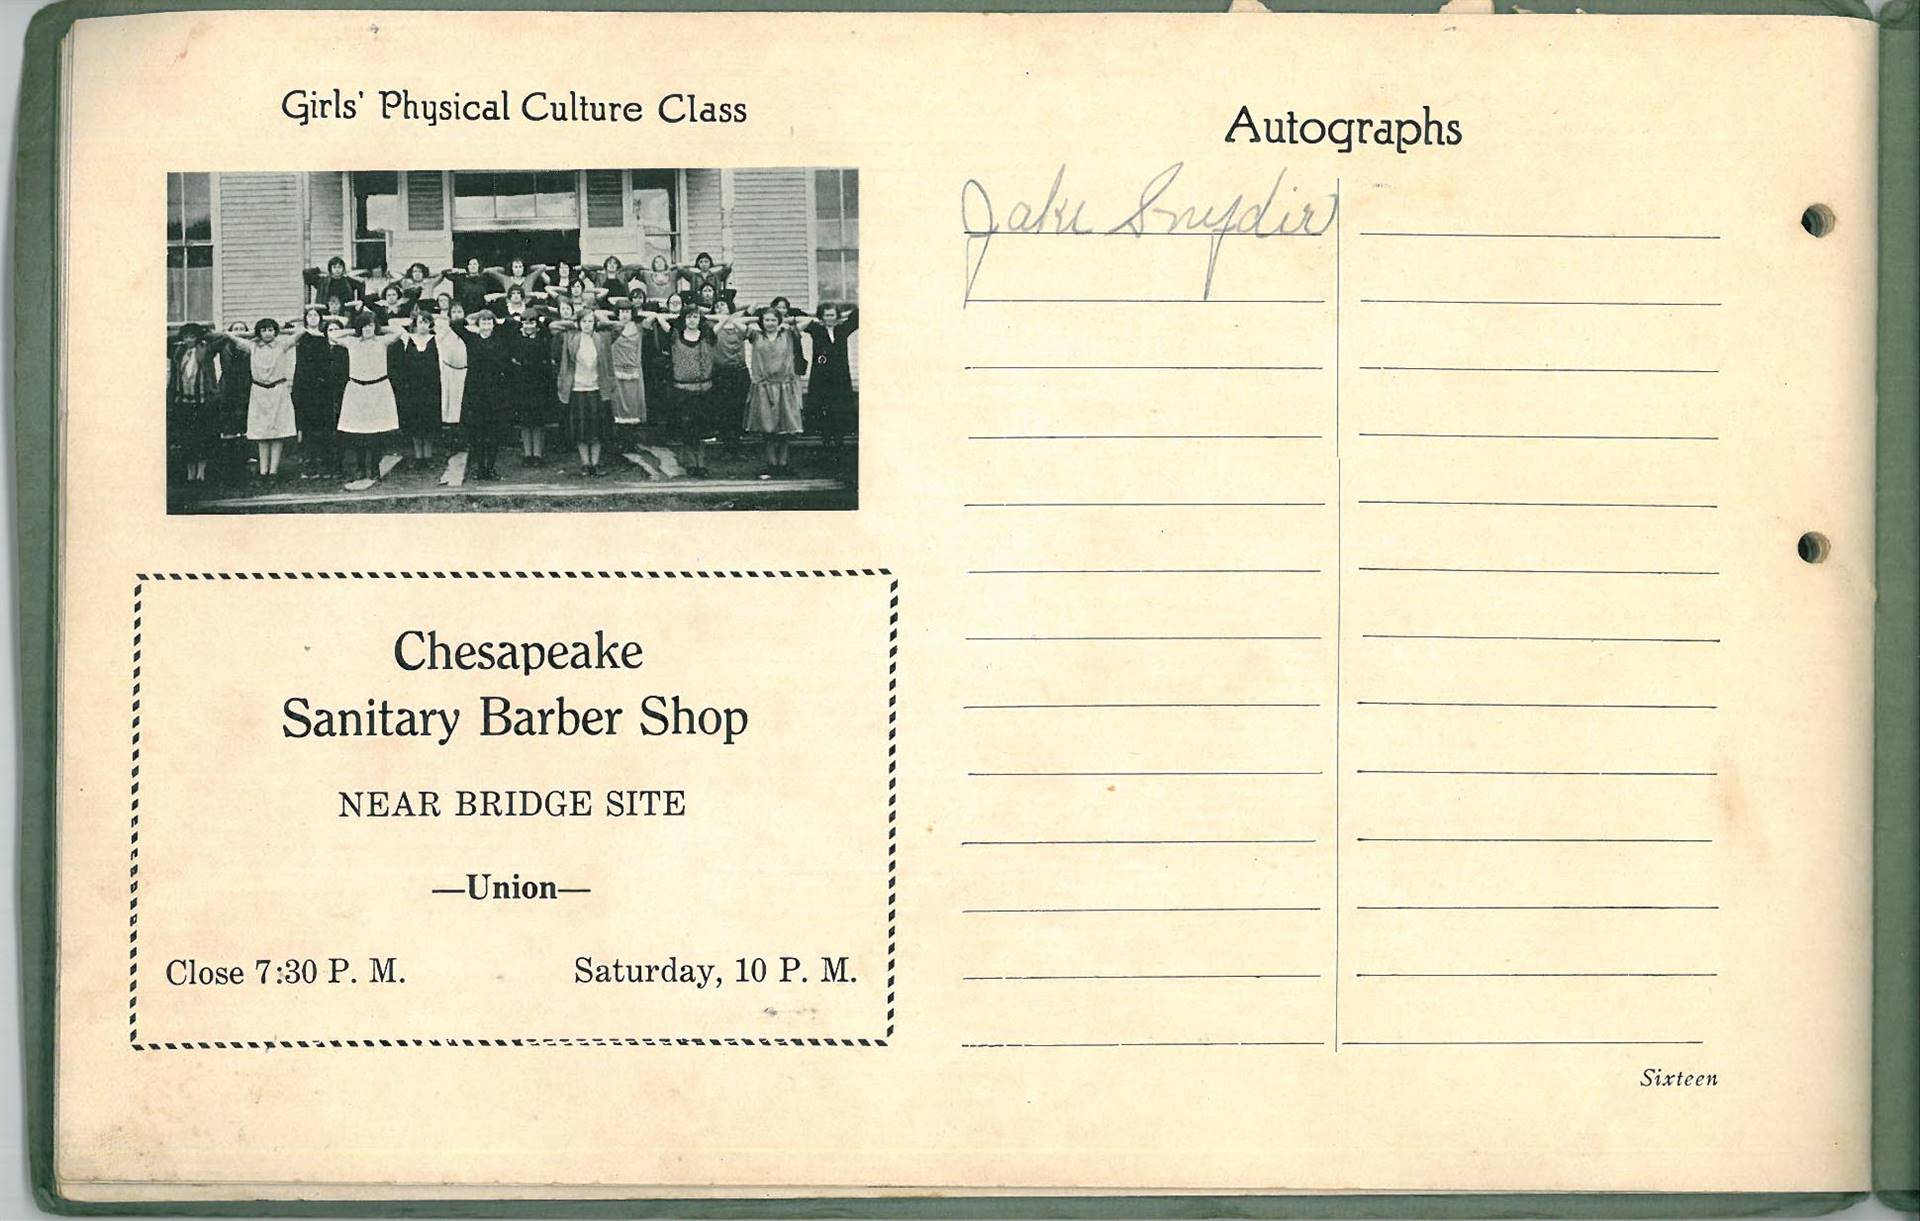 Girls' Physical Culture Class
Chesapeake
Sanitary Barber Shop
NEAR BRIDGE SITE
—Union—
Close 7:30 P. M. Saturday, 10 P. M.
Autographs
Jake Snyder
Sixteen